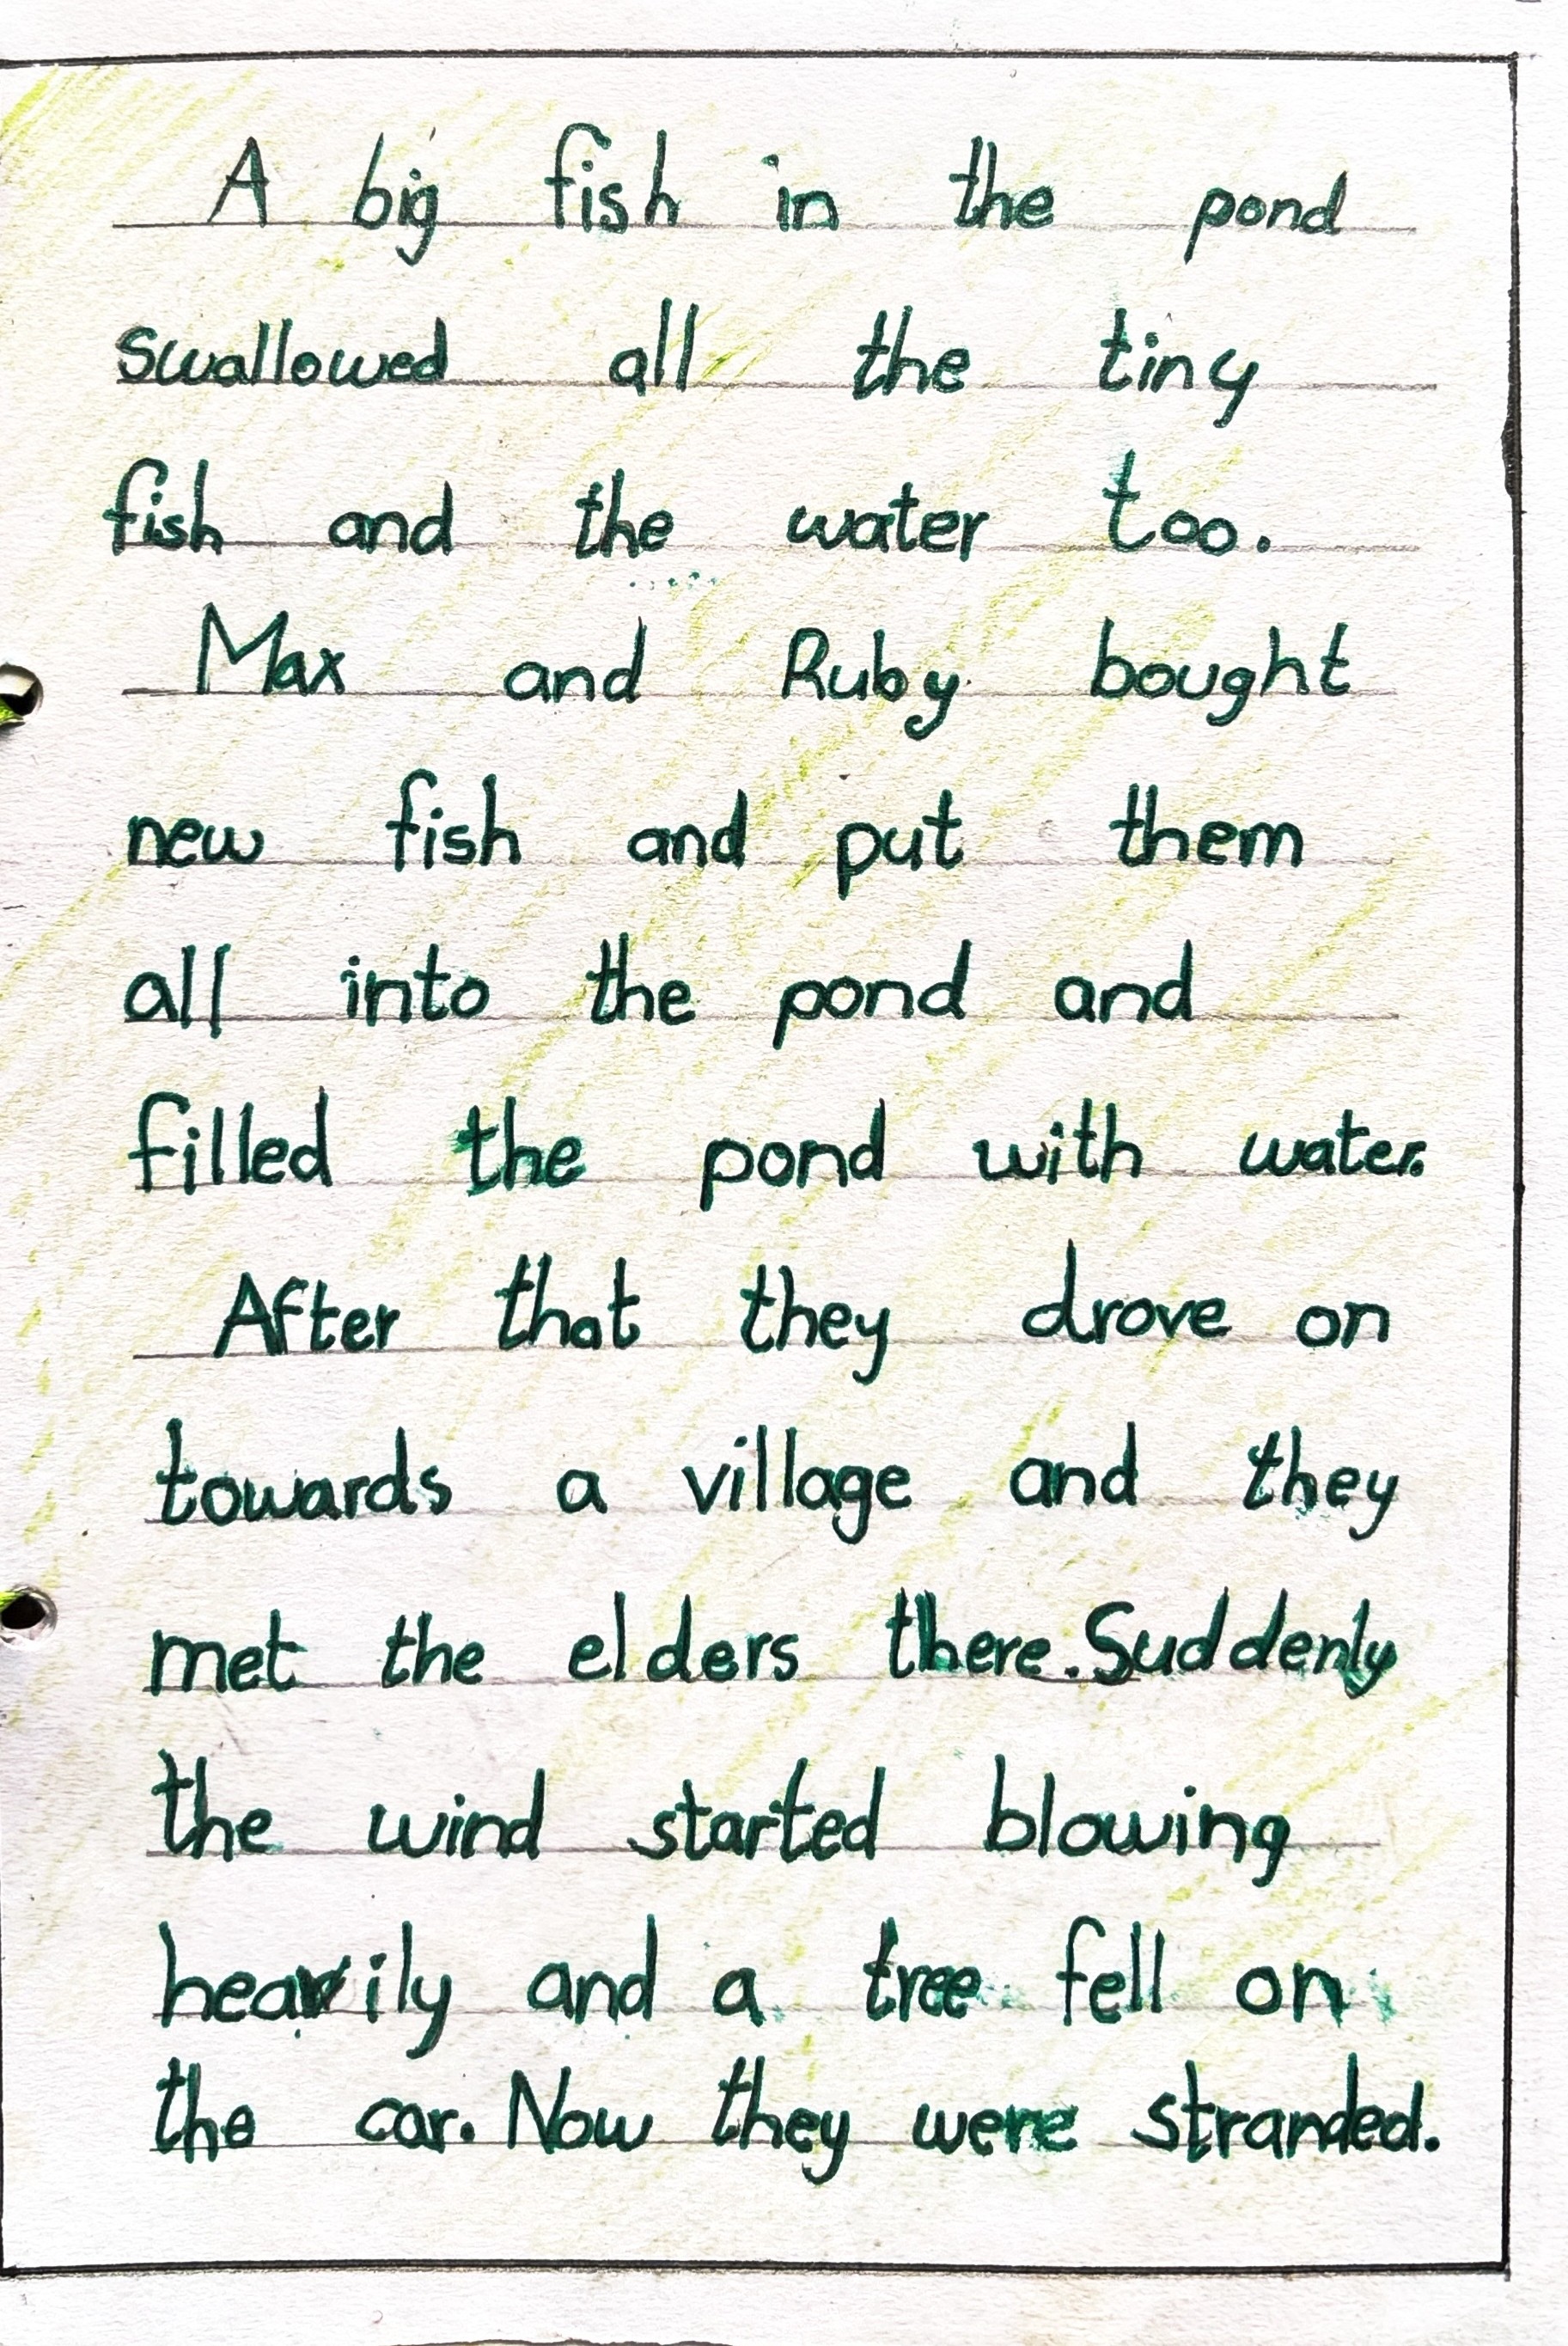 A big fish in the pond
swallowed all the tiny
fish and the water too.
Max and Ruby bought
new fish and put them
all into the pond and
filled the pond with water.
After that they drove on
towards a village and they
met the elders there. Suddenly
the wind started blowing
heavily and a tree fell on
the car. Now they were stranded.